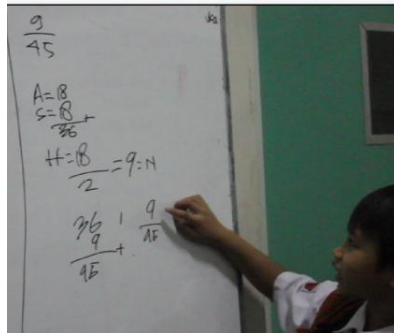 9
45
A=18
S=18
36 +
H=18
2
=9=N
36 1 9
45
9 +
45